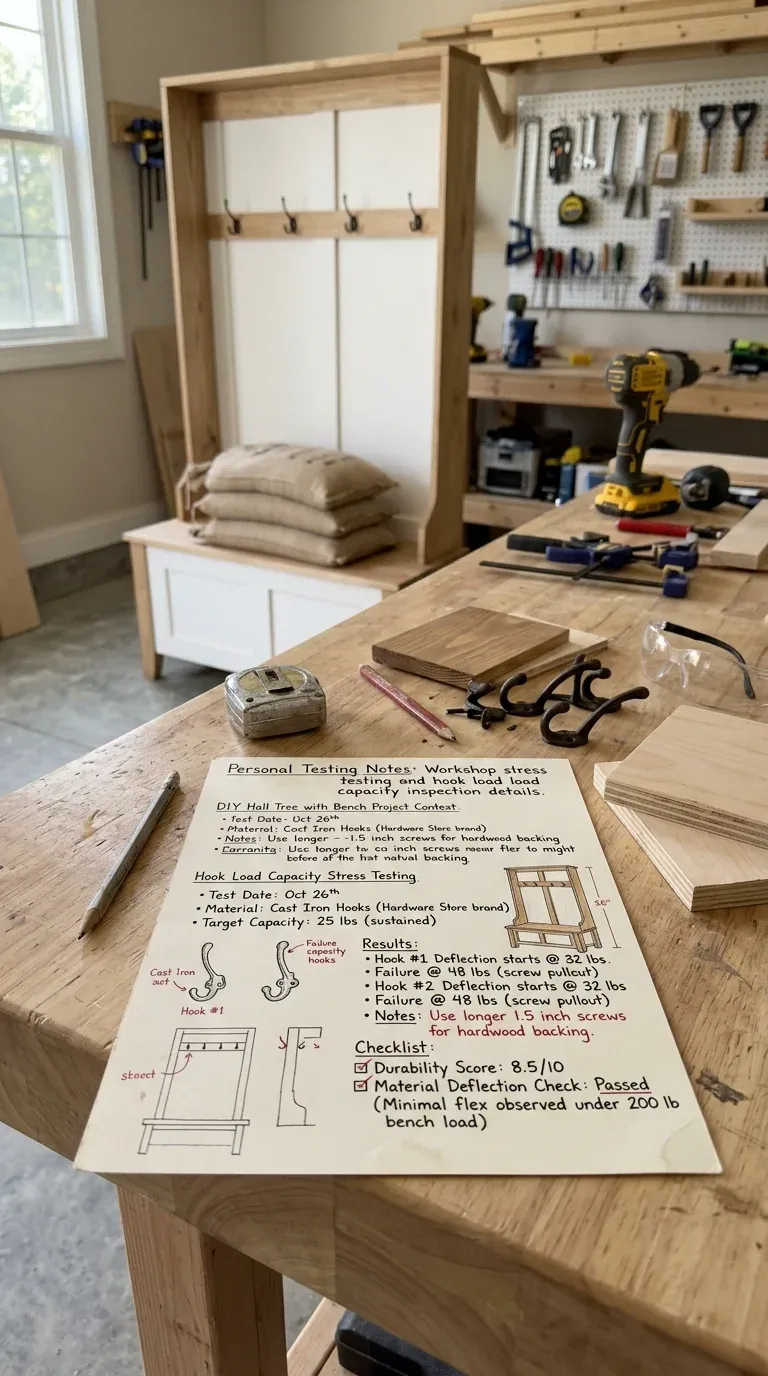 Personal Testing Notes: Workshop stress
testing and hook load load
capacity inspection details.
DIY Hall Tree with Bench Project Context.
• Test Date - Oct 26th
• Cast Iron Hooks (Hardware Store brand)
• Notes: Use longer 1.5 inch screws for hardwood backing
• inch screws to might
before of the backing.
Hook Load Capacity Stress Testing
• Test Date: Oct 26th
• Material: Cast Iron Hooks (Hardware Store brand)
• Target Capacity: 25 lbs (sustained)
36"
Cast Iron
Hook #1
Failure
capacity
hooks
Results:
• Hook #1 Deflection starts @ 32 lbs.
• Failure @ 48 lbs (screw pullout)
• Hook #2 Deflection starts @ 32 lbs
• Failure @ 48 lbs (screw pullout)
• Notes: Use longer 1.5 inch screws
for hardwood backing.
Checklist:
☑ Durability Score: 8.5/10
☑ Material Deflection Check: Passed
(Minimal flex observed under 200 lb
bench load)